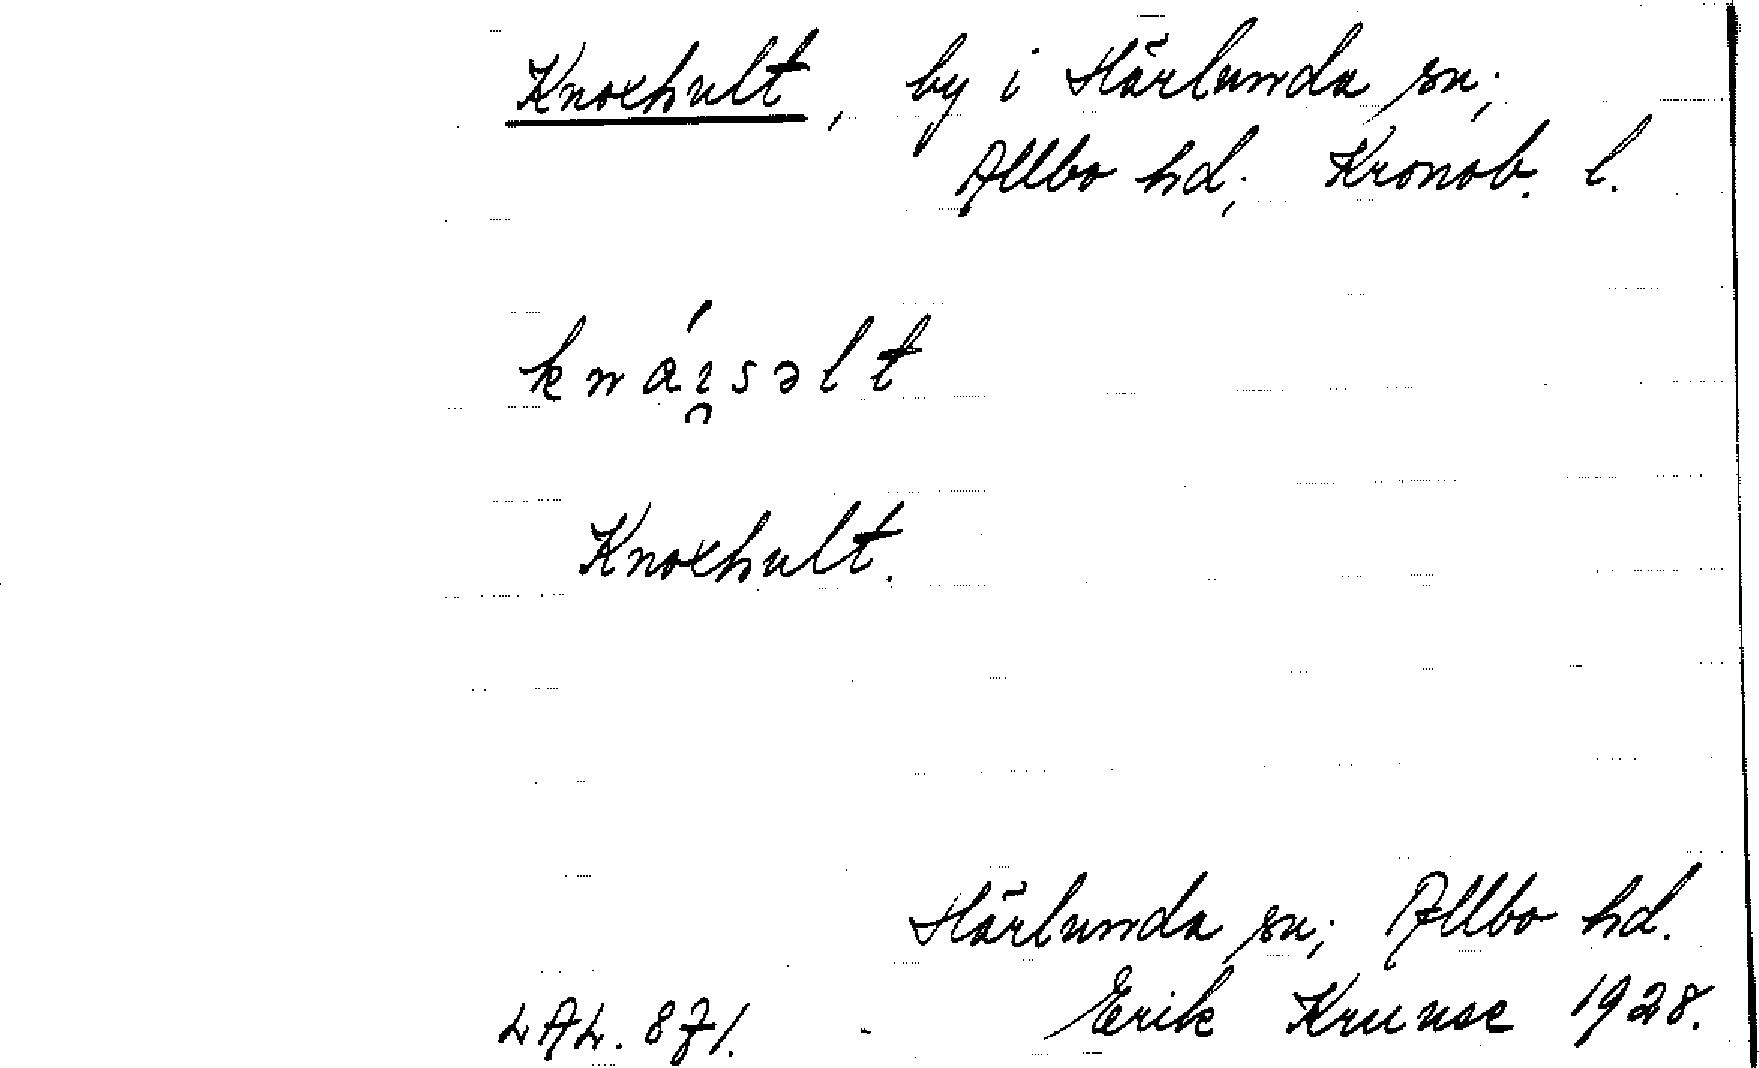 Knoxhult, by i Härlunda sn;
Allbo hd; Kronob. l.
knáı̯səlt
Knoxhult.
Härlunda sn; Allbo hd.
LAL. 871. - Erik Kruuse 1928.